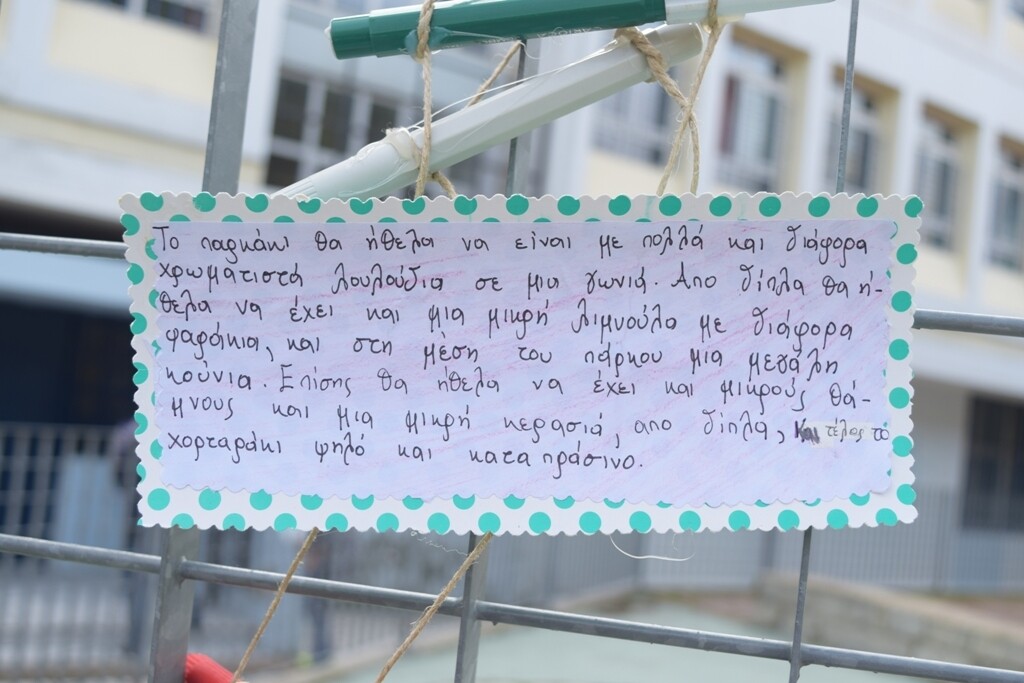 Το παρκάκι θα ήθελα να είναι με πολλά και διάφορα
χρωματιστά λουλούδια σε μια γωνιά. Απο δίπλα θα ή-
θελα να έχει και μια μικρή λιμνούλα με διάφορα
ψαράκια, και στη μέση του πάρκου μια μεγάλη
κούνια. Επίσης θα ήθελα να έχει και μικρούς θά-
μνους και μια μικρή κερασιά, απο δίπλα, Και τέλος το
χορταράκι ψηλό και κατα πράσινο.